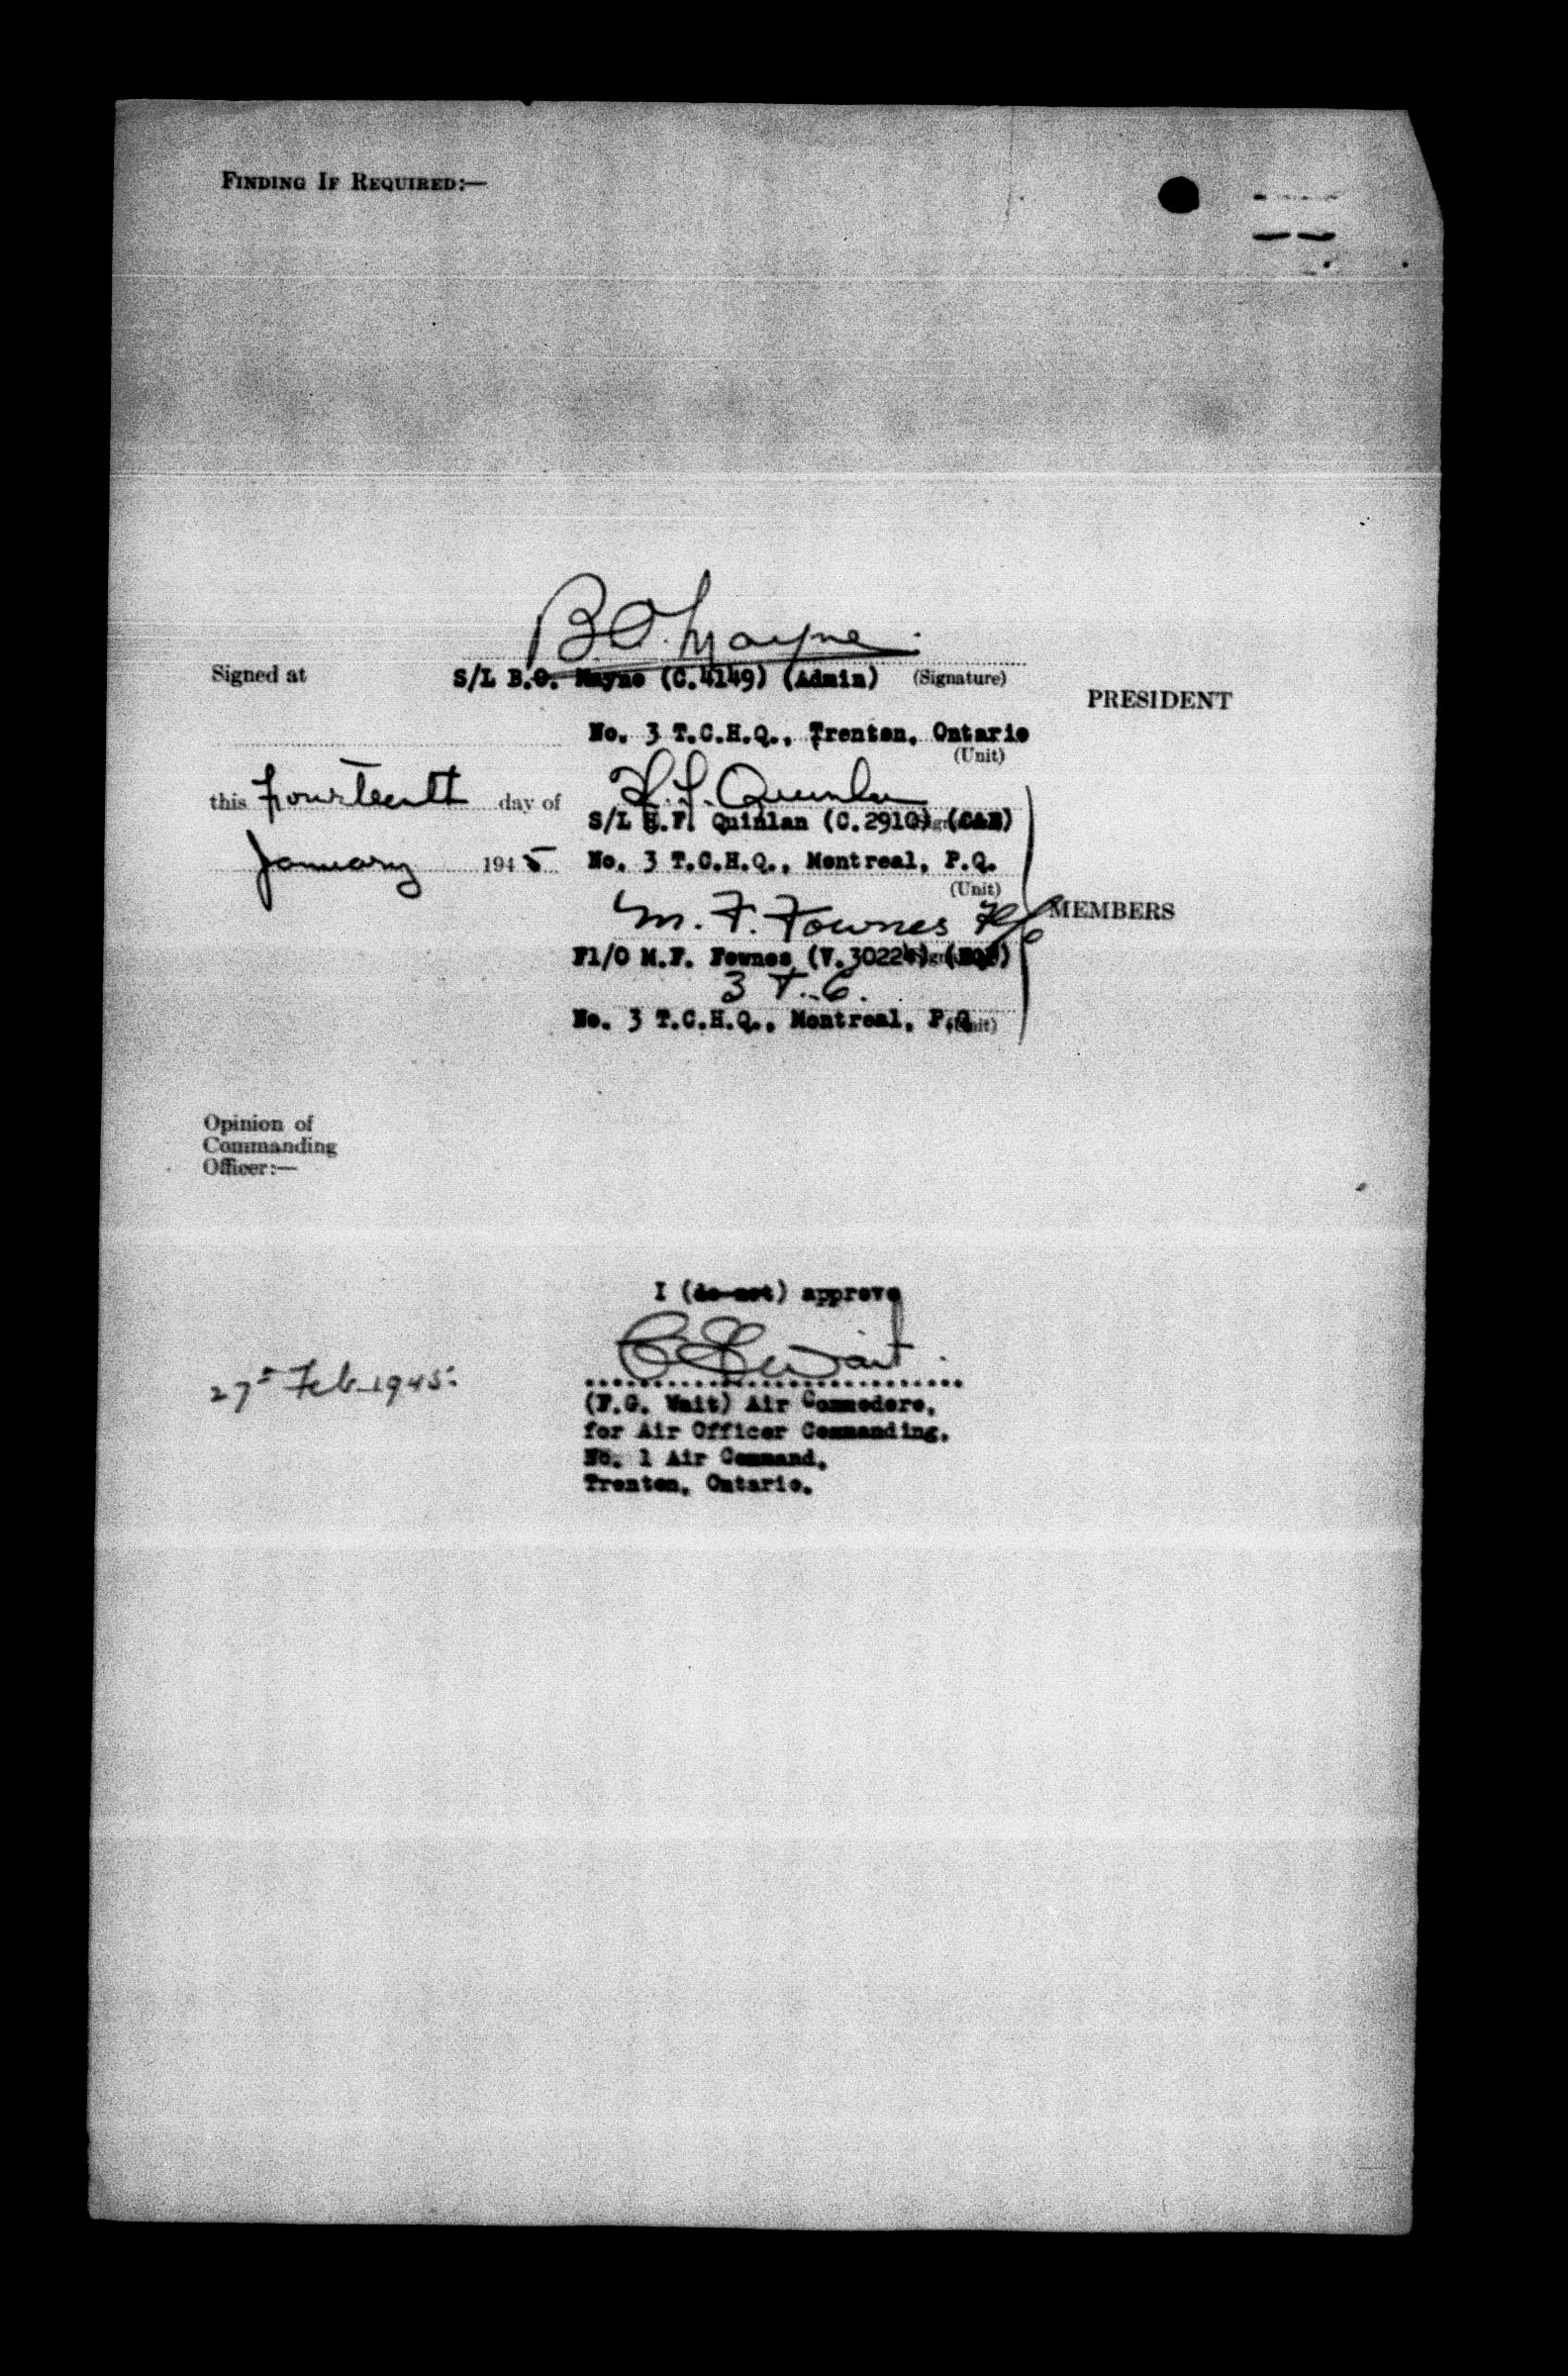 FINDING IF REQUIRED:—
B.O. Mayne
Signed at
S/L B.O. Mayne (C.4149) (Admin) (Signature)
PRESIDENT
No. 3 T.C.H.Q., Trenton, Ontario
(Unit)
this Fourteenth day of
H.F. Quinlan
S/L H.F. Quinlan (C.2910) (CAE)
January 1945
No. 3 T.C.H.Q., Montreal, P.Q.
(Unit)
M. F. Fownes F/O
MEMBERS
Fl/O M.F. Fownes (V.30224)
3 T.C.
No. 3 T.C.H.Q., Montreal, P.Q.
(Unit)
Opinion of
Commanding
Officer:—
I (do not) approve
27th Feb. 1945.
(F.G. Wait) Air Commodore,
for Air Officer Commanding.
No. 1 Air Command,
Trenton, Ontario.